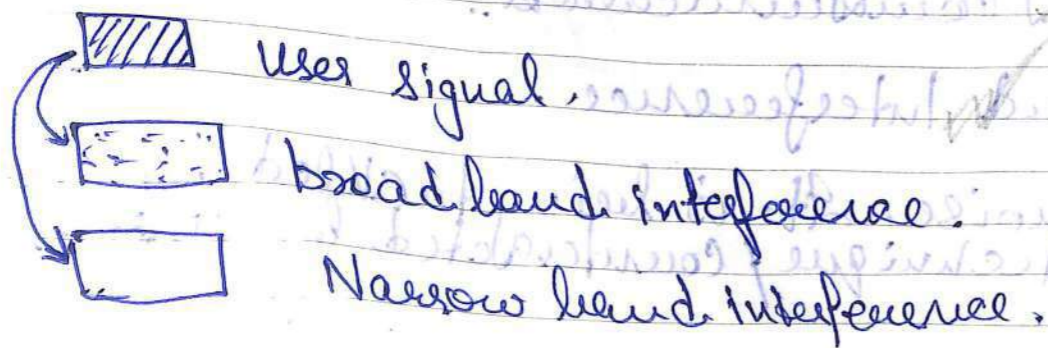 user signal.
broad band interference.
Narrow band interference.